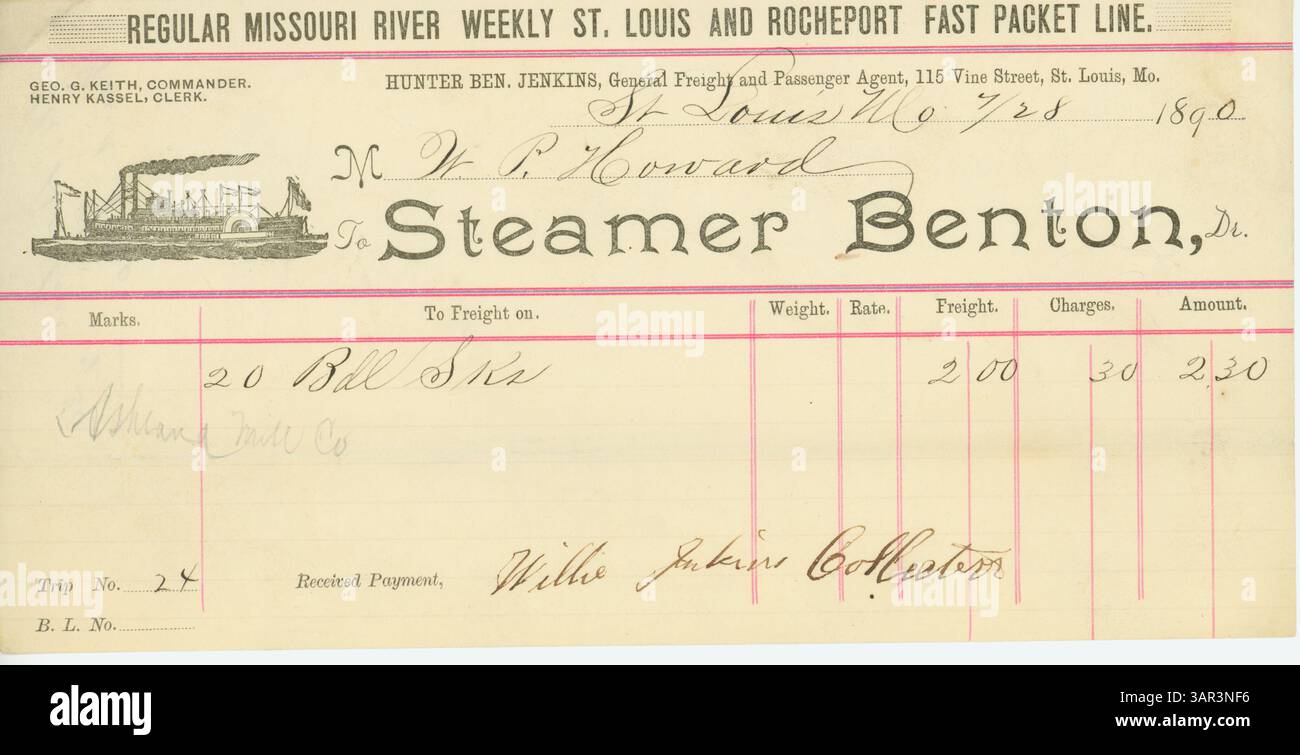 REGULAR MISSOURI RIVER WEEKLY ST. LOUIS AND ROCHEPORT FAST PACKET LINE.
GEO. G. KEITH, COMMANDER.
HENRY KASSEL, CLERK.
HUNTER BEN. JENKINS, General Freight and Passenger Agent, 115 Vine Street, St. Louis, Mo.
St Louis Mo 7/28 1890
M W. P. Howard
To Steamer Benton, Dr.
Marks. To Freight on. Weight. Rate. Freight. Charges. Amount.
20 Bdl Sks 2 00 30 2 30
Ashland Mill Co
Trip No. 24 Received Payment, Willie Jenkins Collector
B. L. No.
alamy
Image ID: 3AR3NF6
www.alamy.com